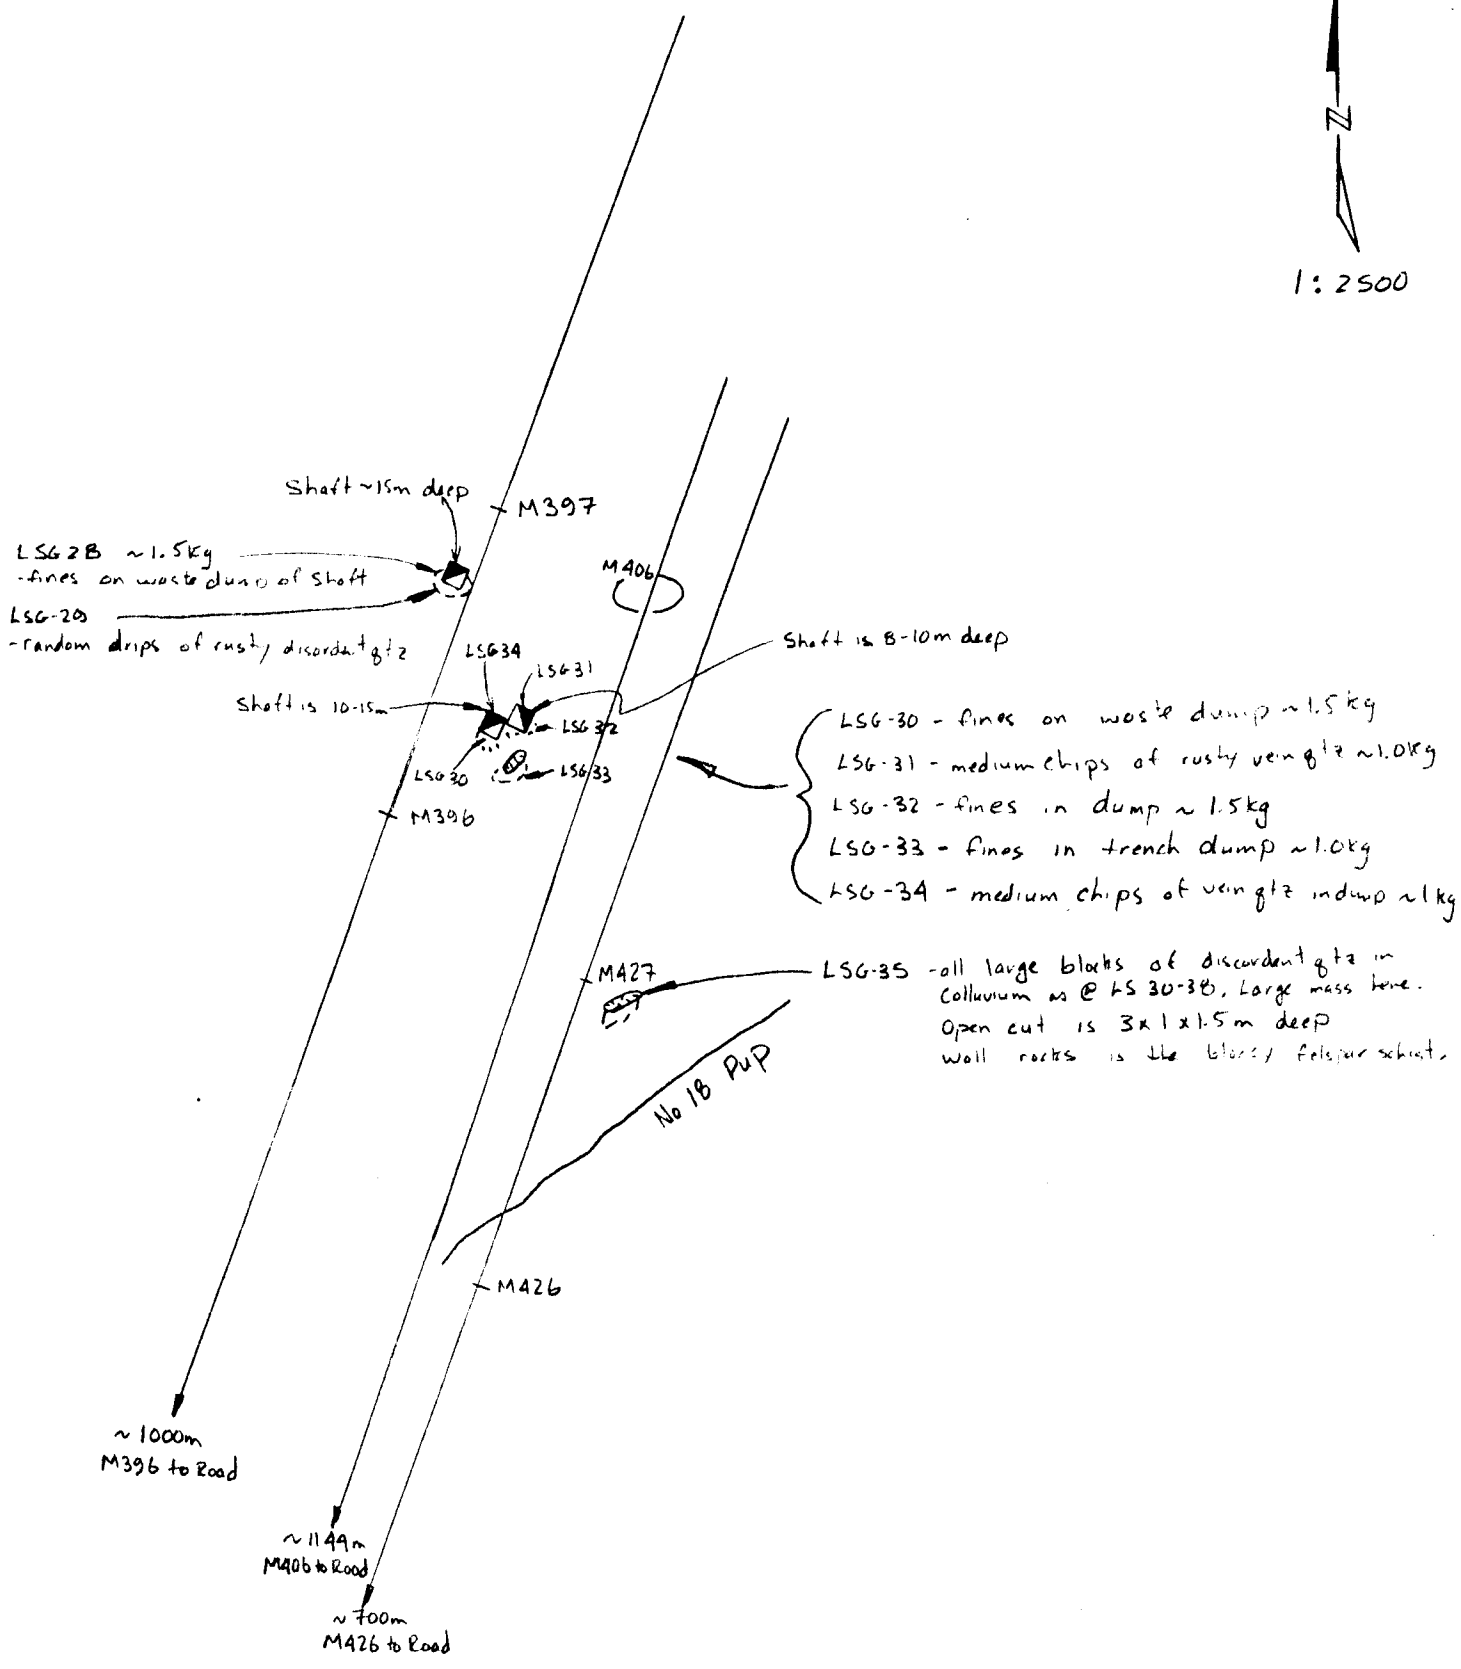 N
1:2500
Shaft ~15m deep
M397
LSG 28 ~1.5kg
-fines on waste dump of shaft
M406
LSG-29
-random chips of rusty discordant qtz
LSG34
LSG31
Shaft is 8-10m deep
Shaft is 10-15m
LSG32
LSG30
LSG33
M396
LSG-30 - fines on waste dump ~1.5kg
LSG-31 - medium chips of rusty vein qtz ~1.0kg
LSG-32 - fines in dump ~1.5kg
LSG-33 - fines in trench dump ~1.0kg
LSG-34 - medium chips of vein qtz in dump ~1kg
M427
LSG-35 -all large blocks of discordent qtz in
Colluvium as @ LS 30-38. Large mass here.
Open cut is 3x1x1.5m deep
Wall rocks is the felspar schist.
No 18 Pup
M426
~1000m
M396 to Road
~1144m
M406 to Road
~700m
M426 to Road